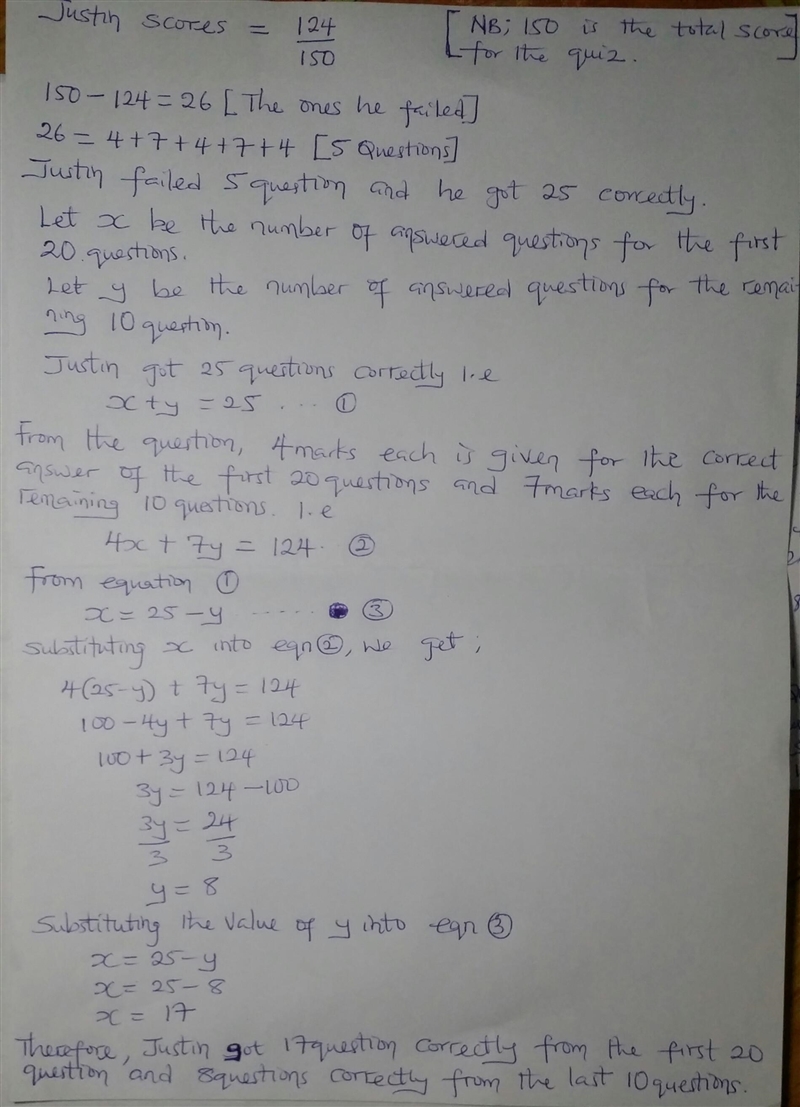 Justin scores = 124/150 [NB; 150 is the total score for the quiz.]
150 - 124 = 26 [The ones he failed]
26 = 4 + 7 + 4 + 7 + 4 [5 Questions]
Justin failed 5 question and he got 25 correctly.
Let x be the number of answered questions for the first
20 questions.
Let y be the number of answered questions for the remai-
ning 10 question.
Justin got 25 questions correctly i.e
x + y = 25 .... ①
From the question, 4marks each is given for the correct
answer of the first 20 questions and 7marks each for the
remaining 10 questions. i.e
4x + 7y = 124. ②
From equation ①
x = 25 - y ...... ③
Substituting x into eqn ②, we get;
4(25-y) + 7y = 124
100 - 4y + 7y = 124
100 + 3y = 124
3y = 124 - 100
3y/3 = 24/3
y = 8
Substituting the value of y into eqn ③
x = 25 - y
x = 25 - 8
x = 17
Therefore, Justin got 17question correctly from the first 20
question and 8questions correctly from the last 10questions.